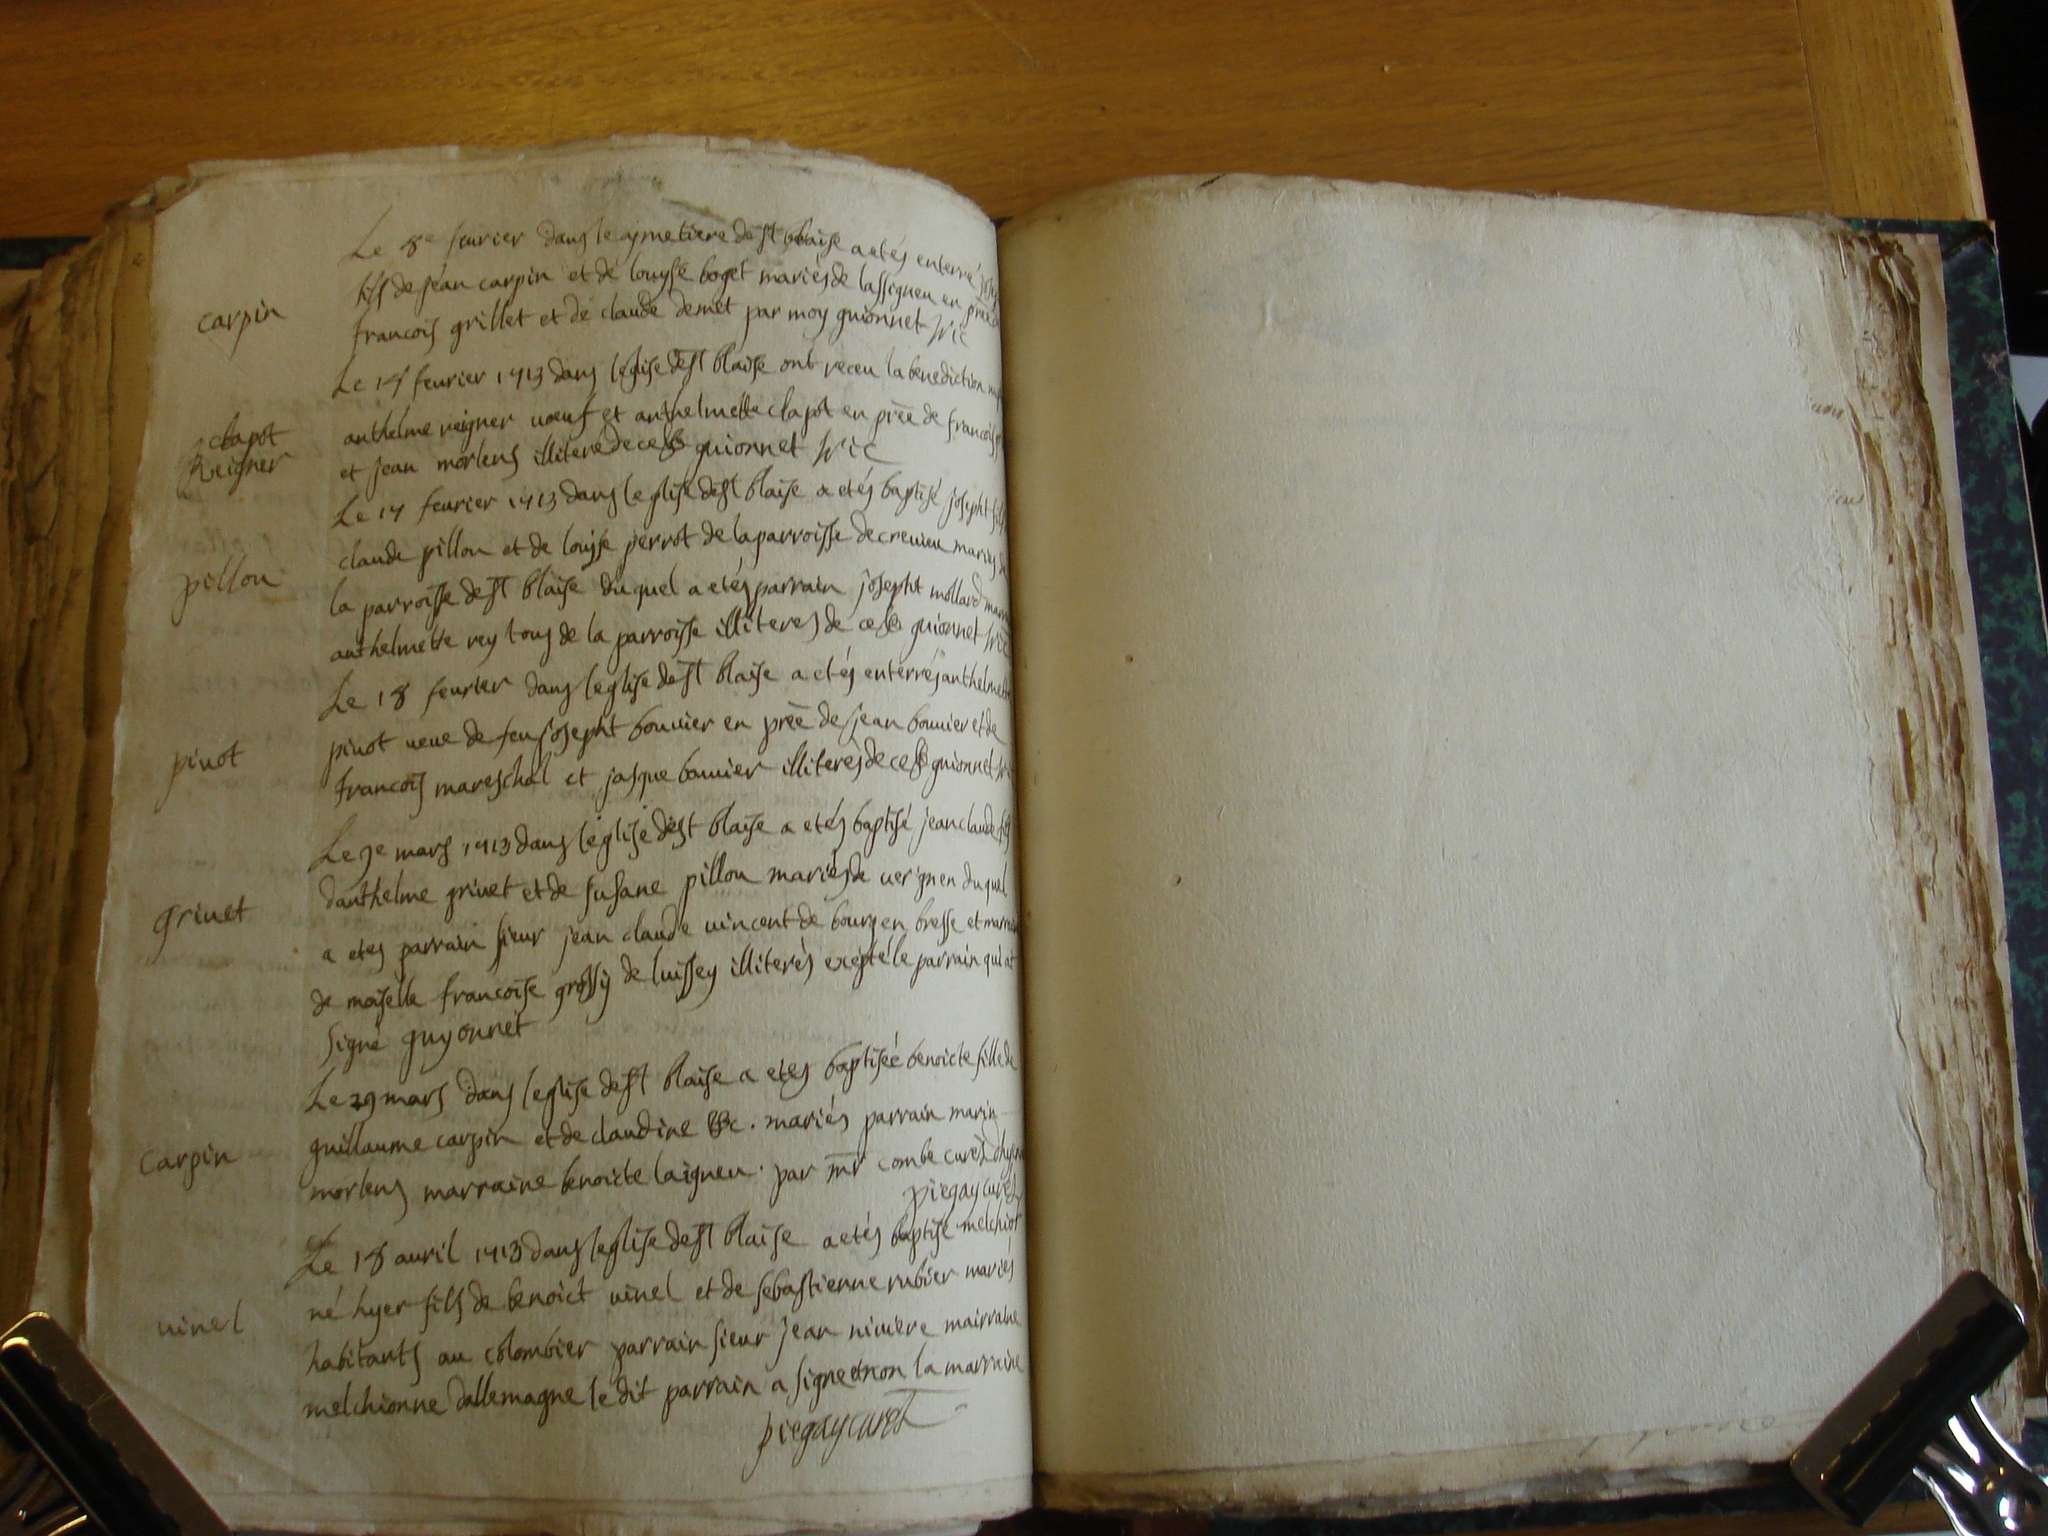 Le 8e feurier dans le cymetiere de st blaise a etés enterré
fils de jean carpin et de louyse boget mariés de lassigneu en prēē
carpin
francois grillet et de claude demet par moy guionnet vic
Le 14 feurier 1713 dans leglise de st blaise ont receu la benediction
anthelme reigner uoeuf et anthelmette clapot en prēē de francois
clapot
Reigner
et jean morlens illiteré de ce guionnet vic
Le 17 feurier 1713 dans leglise de st blaise a etés baptisé joseph fils
claude pillon et de louyse perrot de la parroisse de creuieu mariés de
pillon
la parroisse de st blaise duquel a etés parrain josepht mollard
anthelmette rey tous de la parroisse illiterés de ce guionnet vic
Le 18 feurier dans leglise de st blaise a etés enterrés anthelmette
pinot ueue de feu josepht bouuier en prēē de jean bouuier et de
pinot
francois mareschal et jasque bouuier illiterés de ce guionnet
Le 7e mars 1713 dans leglise de st blaise a etés baptisé jean claude fils
danthelme griuet et de susane pillon mariés de uerignen duquel
griuet
a etes parrain sieur jean claude uincent de bourg en bresse et marraine
de moiselle francoise grossy de luissey illiterés exepté le parrain qui at
signé guyonnet
Le 29 mars dans leglise de st blaise a etes baptiseé benoicte fille de
guillaume carpin et de claudine &c. mariés parrain marin
carpin
morlens marraine benoicte laigneu. par mr combe curé
piegay curé
Le 18 auril 1713 dans leglise de st blaise a etés baptise melchior
né hyer fils de benoict uinel et de sebastienne rubier mariés
uinel
habitants au colombier parrain sieur jean niuiere mairraine
melchionne dallemagne le dit parrain a signé et non la marraine
piegay curé